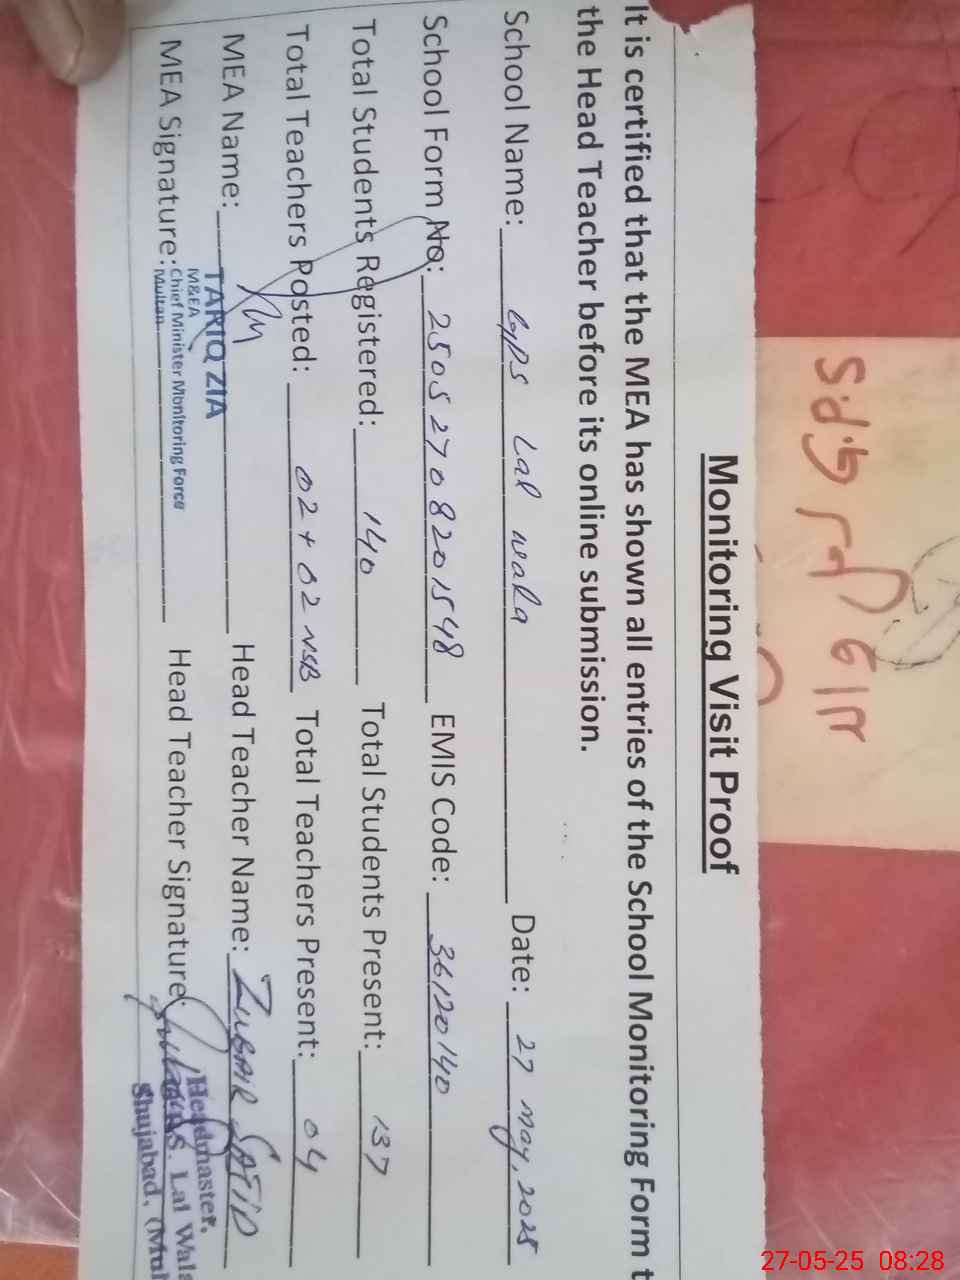 Monitoring Visit Proof
It is certified that the MEA has shown all entries of the School Monitoring Form t
the Head Teacher before its online submission.
School Name: GPS Lal wala Date: 27 May, 2025
School Form No: 25052708201548 EMIS Code: 36120140
Total Students Registered: 140 Total Students Present: 137
Total Teachers Posted: 02 + 02 NSB Total Teachers Present: 04
MEA Name: TARIQ ZIA Head Teacher Name: ZUBAIR SAJID
M&EA
MEA Signature: Head Teacher Signature:
Chief Minister Monitoring Force
Multan
Headmaster,
G.P.S. Lal Wala
Shujabad, (Mul
27-05-25 08:28